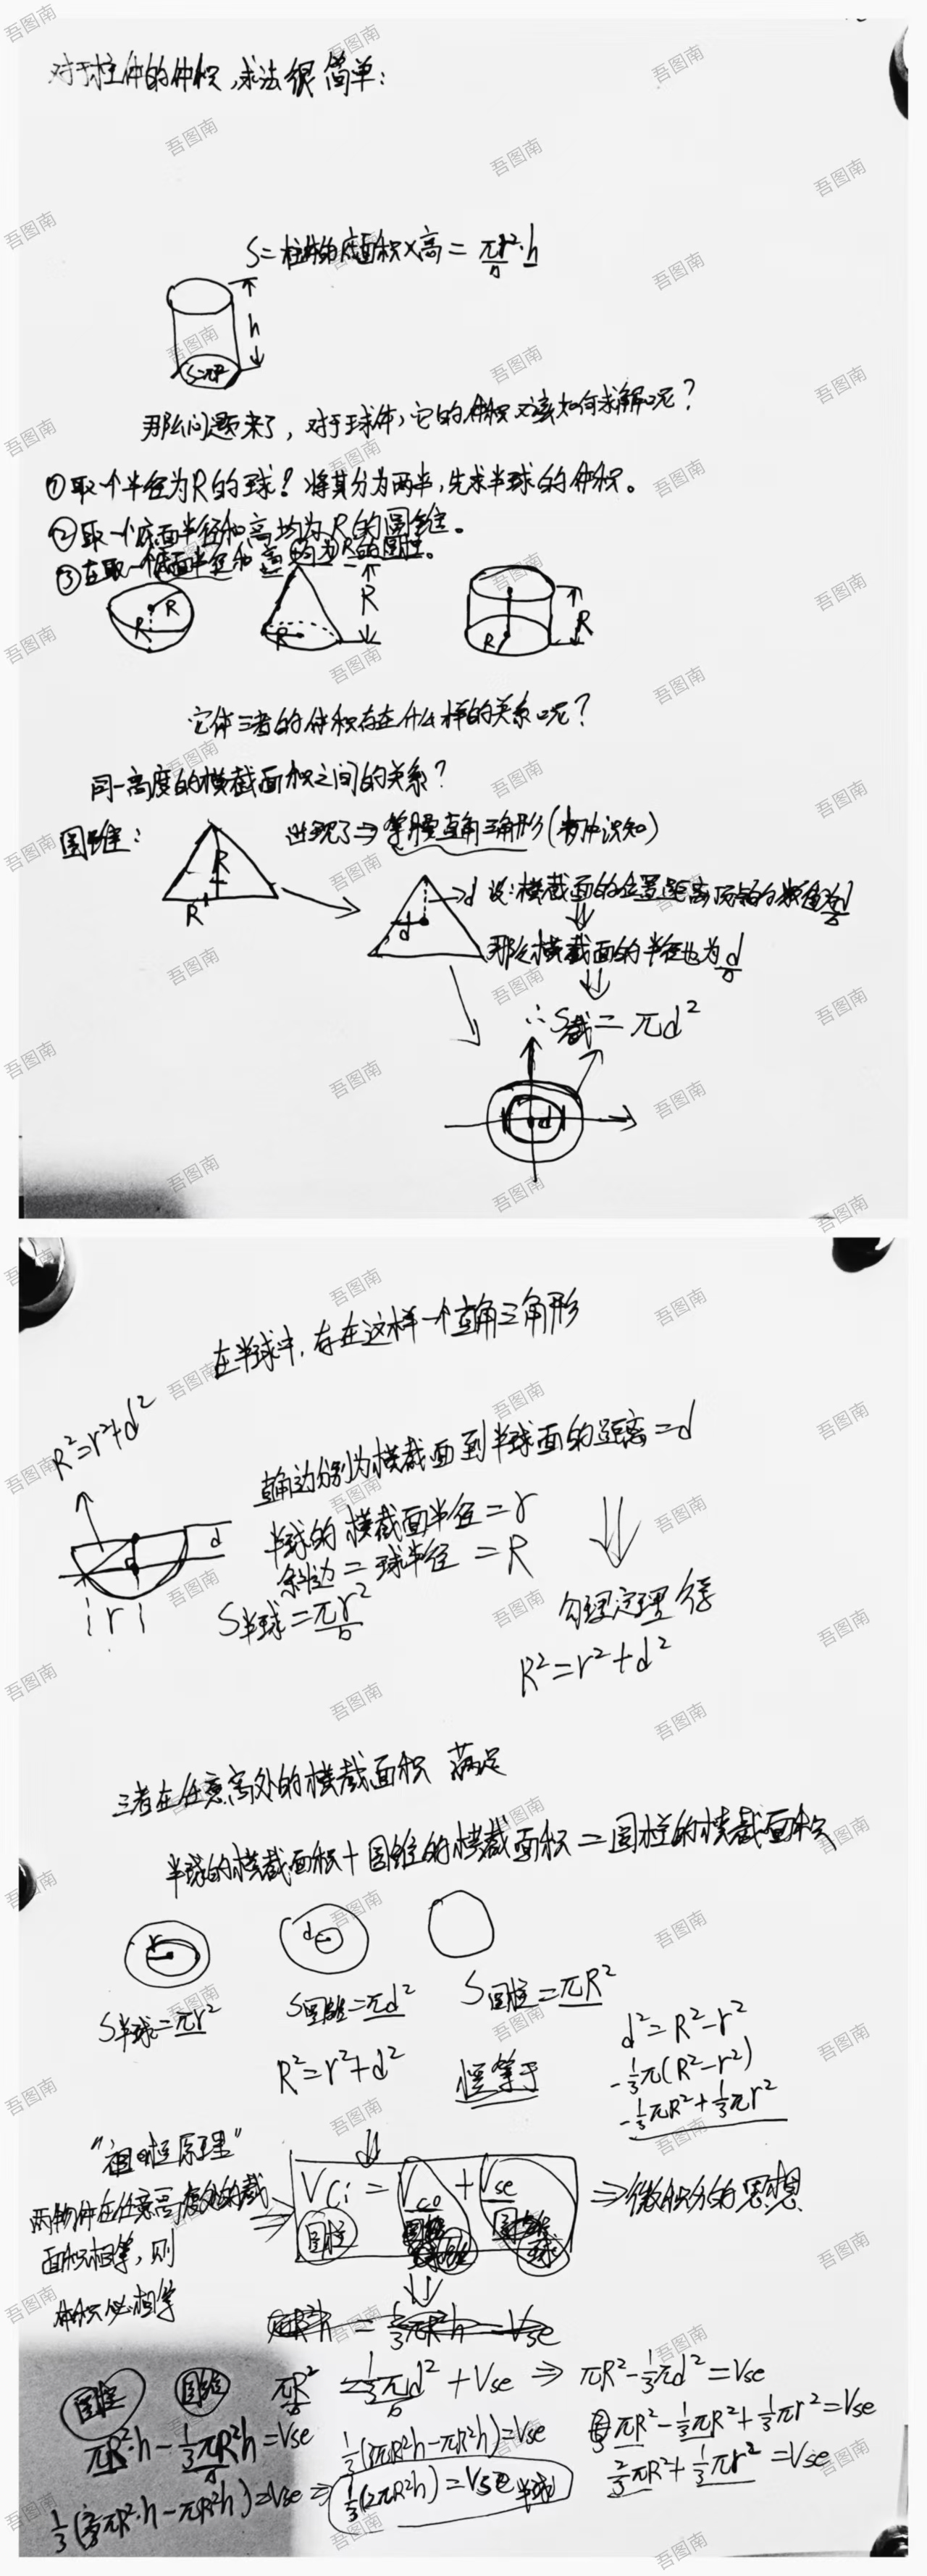 对于柱体的体积,求法很简单:
S=柱体的底面积×高=πr²·h
h
S=πR²
那么问题来了,对于球体,它的体积又该如何求解呢?
①取个半径为R的球!将其分为两半,先求半球的体积。
②取一个底面半径和高均为R的圆锥。
③在取一个底面半径和高均为R的圆柱。
R
R
R
R
R
R
它体三者的体积存在什么样的关系呢?
同一高度的横截面积之间的关系?
圆锥:
出现了⇒等腰直角三角形
R
R
d
d
设:横截面的位置距离顶锥的数值为d
那么横截面的半径也为d
∴S截=πd²
d
在半球中,存在这样一个直角三角形
R²=r²+d²
直角边分别为横截面到半球面的距离=d
半球的横截面半径=r
斜边=球半径=R
S半球=πr²
d
r
勾理定理得
R²=r²+d²
三者在任意高处的横截面积 满足
半球的横截面积+圆锥的横截面积=圆柱的横截面积
r
d
S半球=πr²
S圆锥=πd²
S圆柱=πR²
R²=r²+d²
恒等于
d²=R²-r²
-⅓π(R²-r²)
-⅓πR²+⅓πr²
"祖暅原理"
两物体在任意高度处的截
面积相等,则
体积必相等
⇒
Vci=Vco+Vse
圆柱
⇒微积分的思想
πR²=⅓πd²+Vse⇒πR²-⅓πd²=Vse
圆柱
圆锥
πR²·h-⅓πR²h=Vse
⅓(3πR²h-πR²h)=Vse
πR²-⅓πR²+⅓πr²=Vse
⅔πR²+⅓πr²=Vse
⅓(3πR²·h-πR²h)=Vse⇒⅓(2πR²h)=Vse半球
吾图南